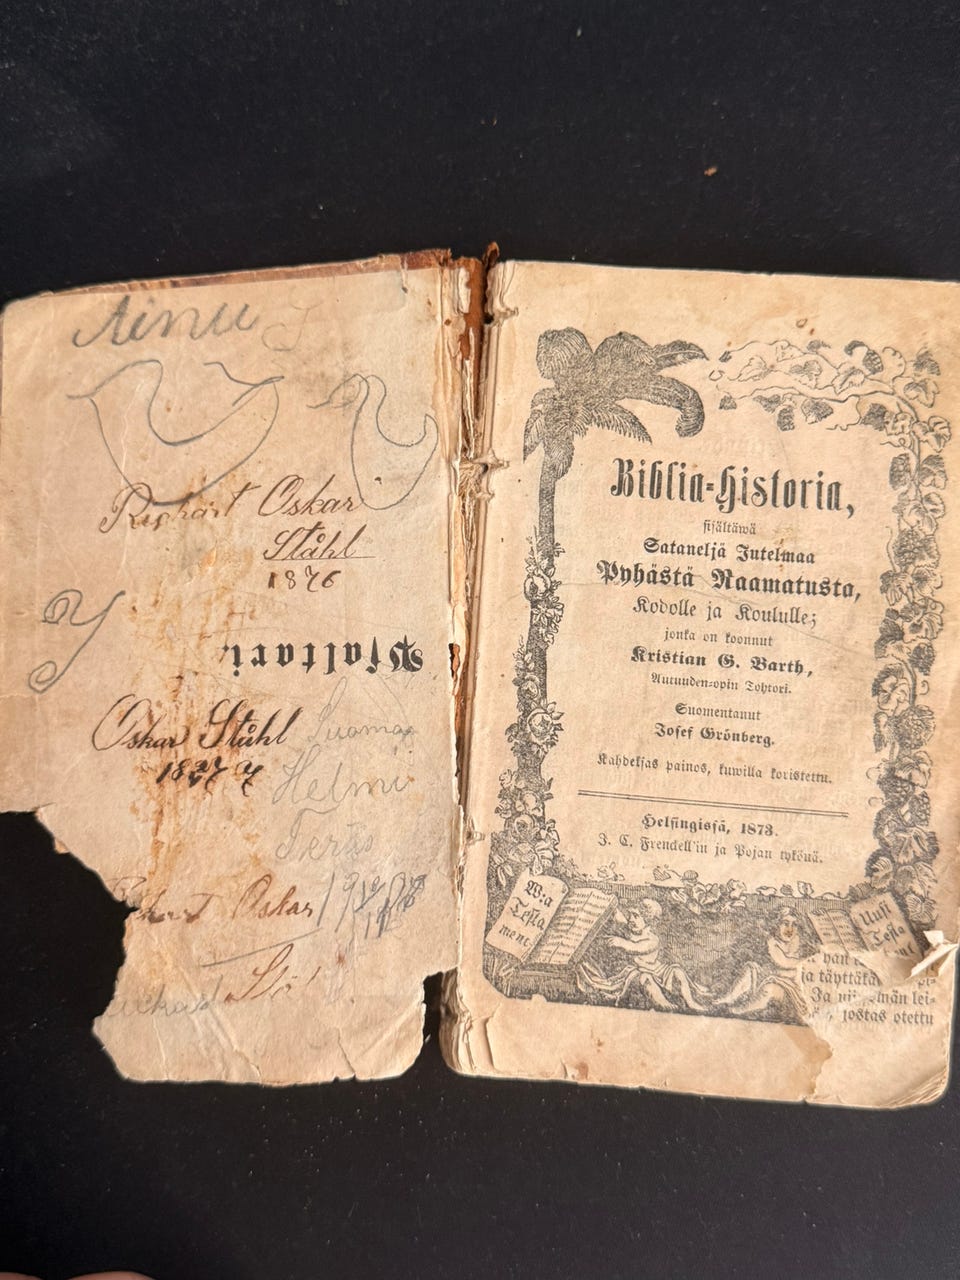 Ainu
Oskar
Ståhl
1876
Psaltari.
Oskar Ståhl
Helmi
Oskar
Biblia-Historia,
sisältäwä
Sataneljä Jutelmaa
Pyhästä Raamatusta,
Kodolle ja Koululle;
jonka on koonnut
Kristian G. Barth,
Autuuden-opin Tohtori.
Suomentanut
Josef Grönberg.
Kahdeksas painos, kuwilla koristettu.
Helsingissä, 1873.
J. C. Frenckell'in ja Pojan tykönä.
W:a
Testa
ment
Uusi
Testa
ja täyttäkä
lei-
jostas otettu